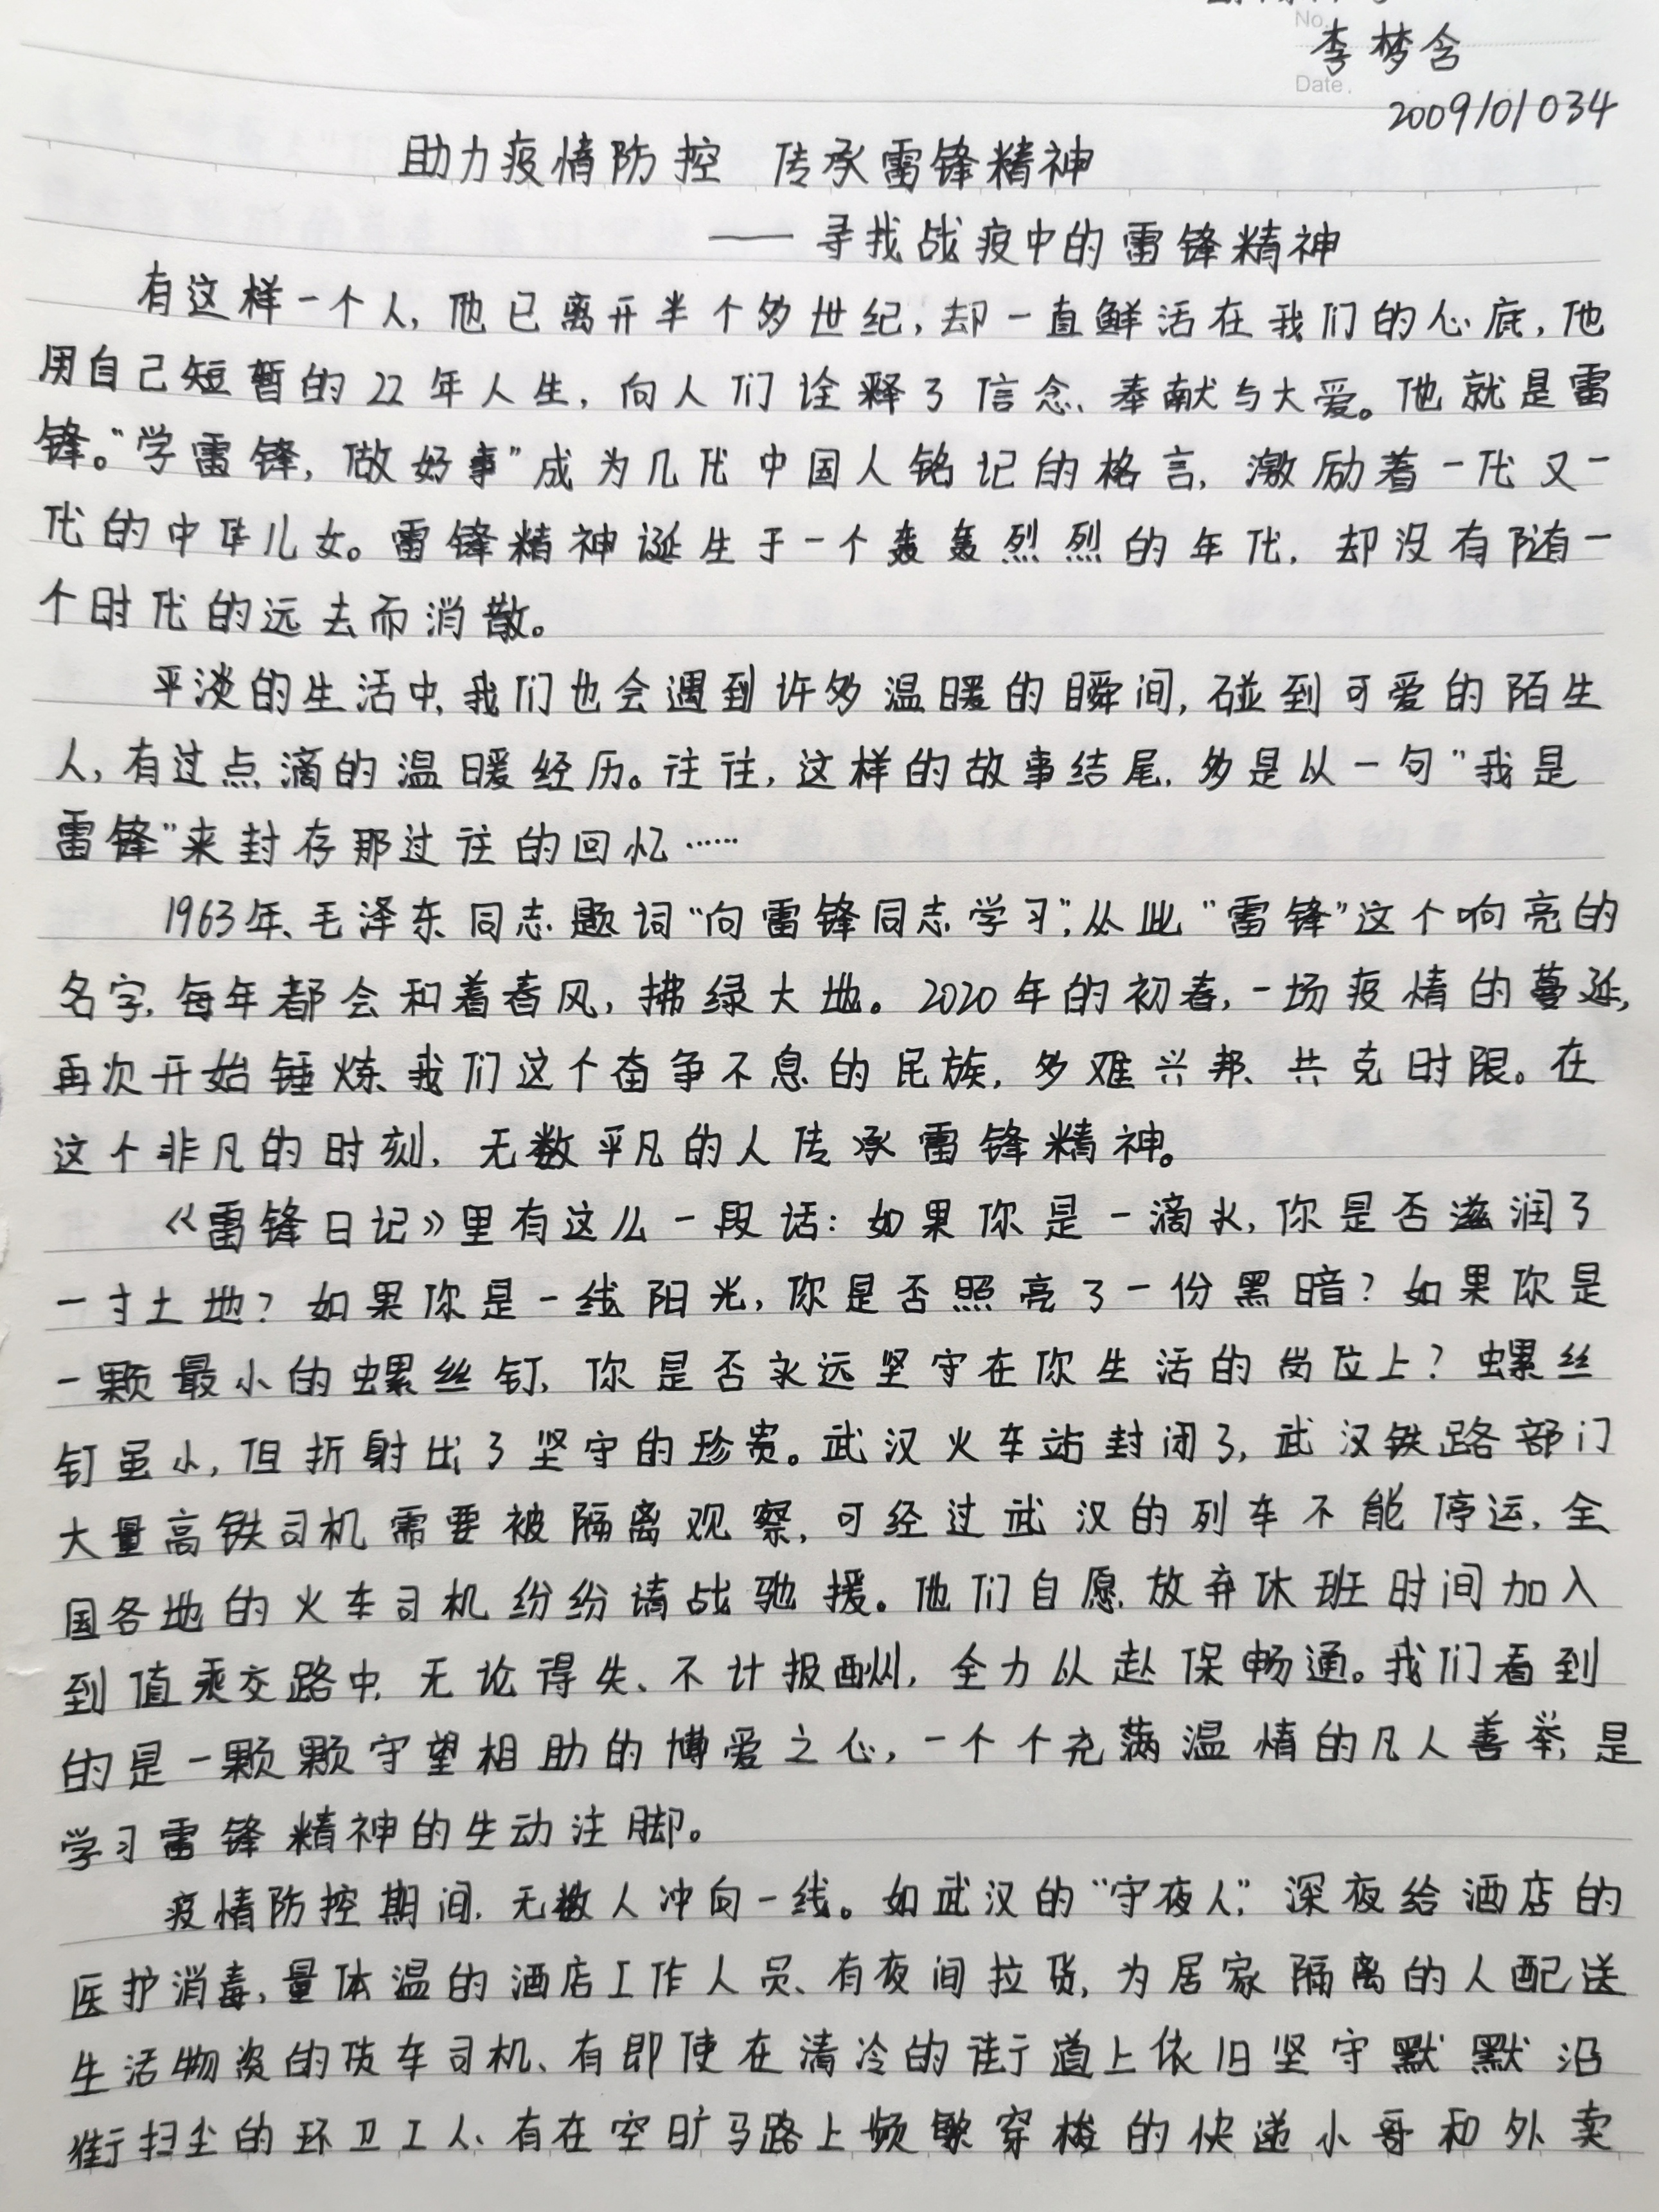 No.
李梦含
Date.
2009101034
助力疫情防控 传承雷锋精神
——寻找战疫中的雷锋精神
有这样一个人,他已离开半个多世纪,却一直鲜活在我们的心底,他
用自己短暂的22年人生,向人们诠释了信念、奉献与大爱。他就是雷
锋。“学雷锋,做好事”成为几代中国人铭记的格言,激励着一代又一
代的中华儿女。雷锋精神诞生于一个轰轰烈烈的年代,却没有随一
个时代的远去而消散。
平淡的生活中,我们也会遇到许多温暖的瞬间,碰到可爱的陌生
人,有过点滴的温暖经历。往往,这样的故事结尾,多是以一句“我是
雷锋”来封存那过往的回忆……
1963年、毛泽东同志题词“向雷锋同志学习”,从此“雷锋”这个响亮的
名字,每年都会和着春风,拂绿大地。2020年的初春,一场疫情的蔓延,
再次开始锤炼我们这个奋争不息的民族,多难兴邦、共克时限。在
这个非凡的时刻,无数平凡的人传承雷锋精神。
《雷锋日记》里有这么一段话:如果你是一滴水,你是否滋润了
一寸土地?如果你是一线阳光,你是否照亮了一份黑暗?如果你是
一颗最小的螺丝钉,你是否永远坚守在你生活的岗位上?螺丝
钉虽小,但折射出了坚守的珍贵。武汉火车站封闭了,武汉铁路部门
大量高铁司机需要被隔离观察,可经过武汉的列车不能停运,全
国各地的火车司机纷纷请战驰援。他们自愿放弃休班时间加入
到值乘交路中,无论得失、不计报酬,全力以赴保畅通。我们看到
的是一颗颗守望相助的博爱之心,一个个充满温情的凡人善举,是
学习雷锋精神的生动注脚。
疫情防控期间,无数人冲向一线。如武汉的“守夜人”,深夜给酒店的
医护消毒,量体温的酒店工作人员、有夜间拉货,为居家隔离的人配送
生活物资的货车司机、有即使在清冷的街道上依旧坚守默默沿
街扫尘的环卫工人、有在空旷马路上频繁穿梭的快递小哥和外卖